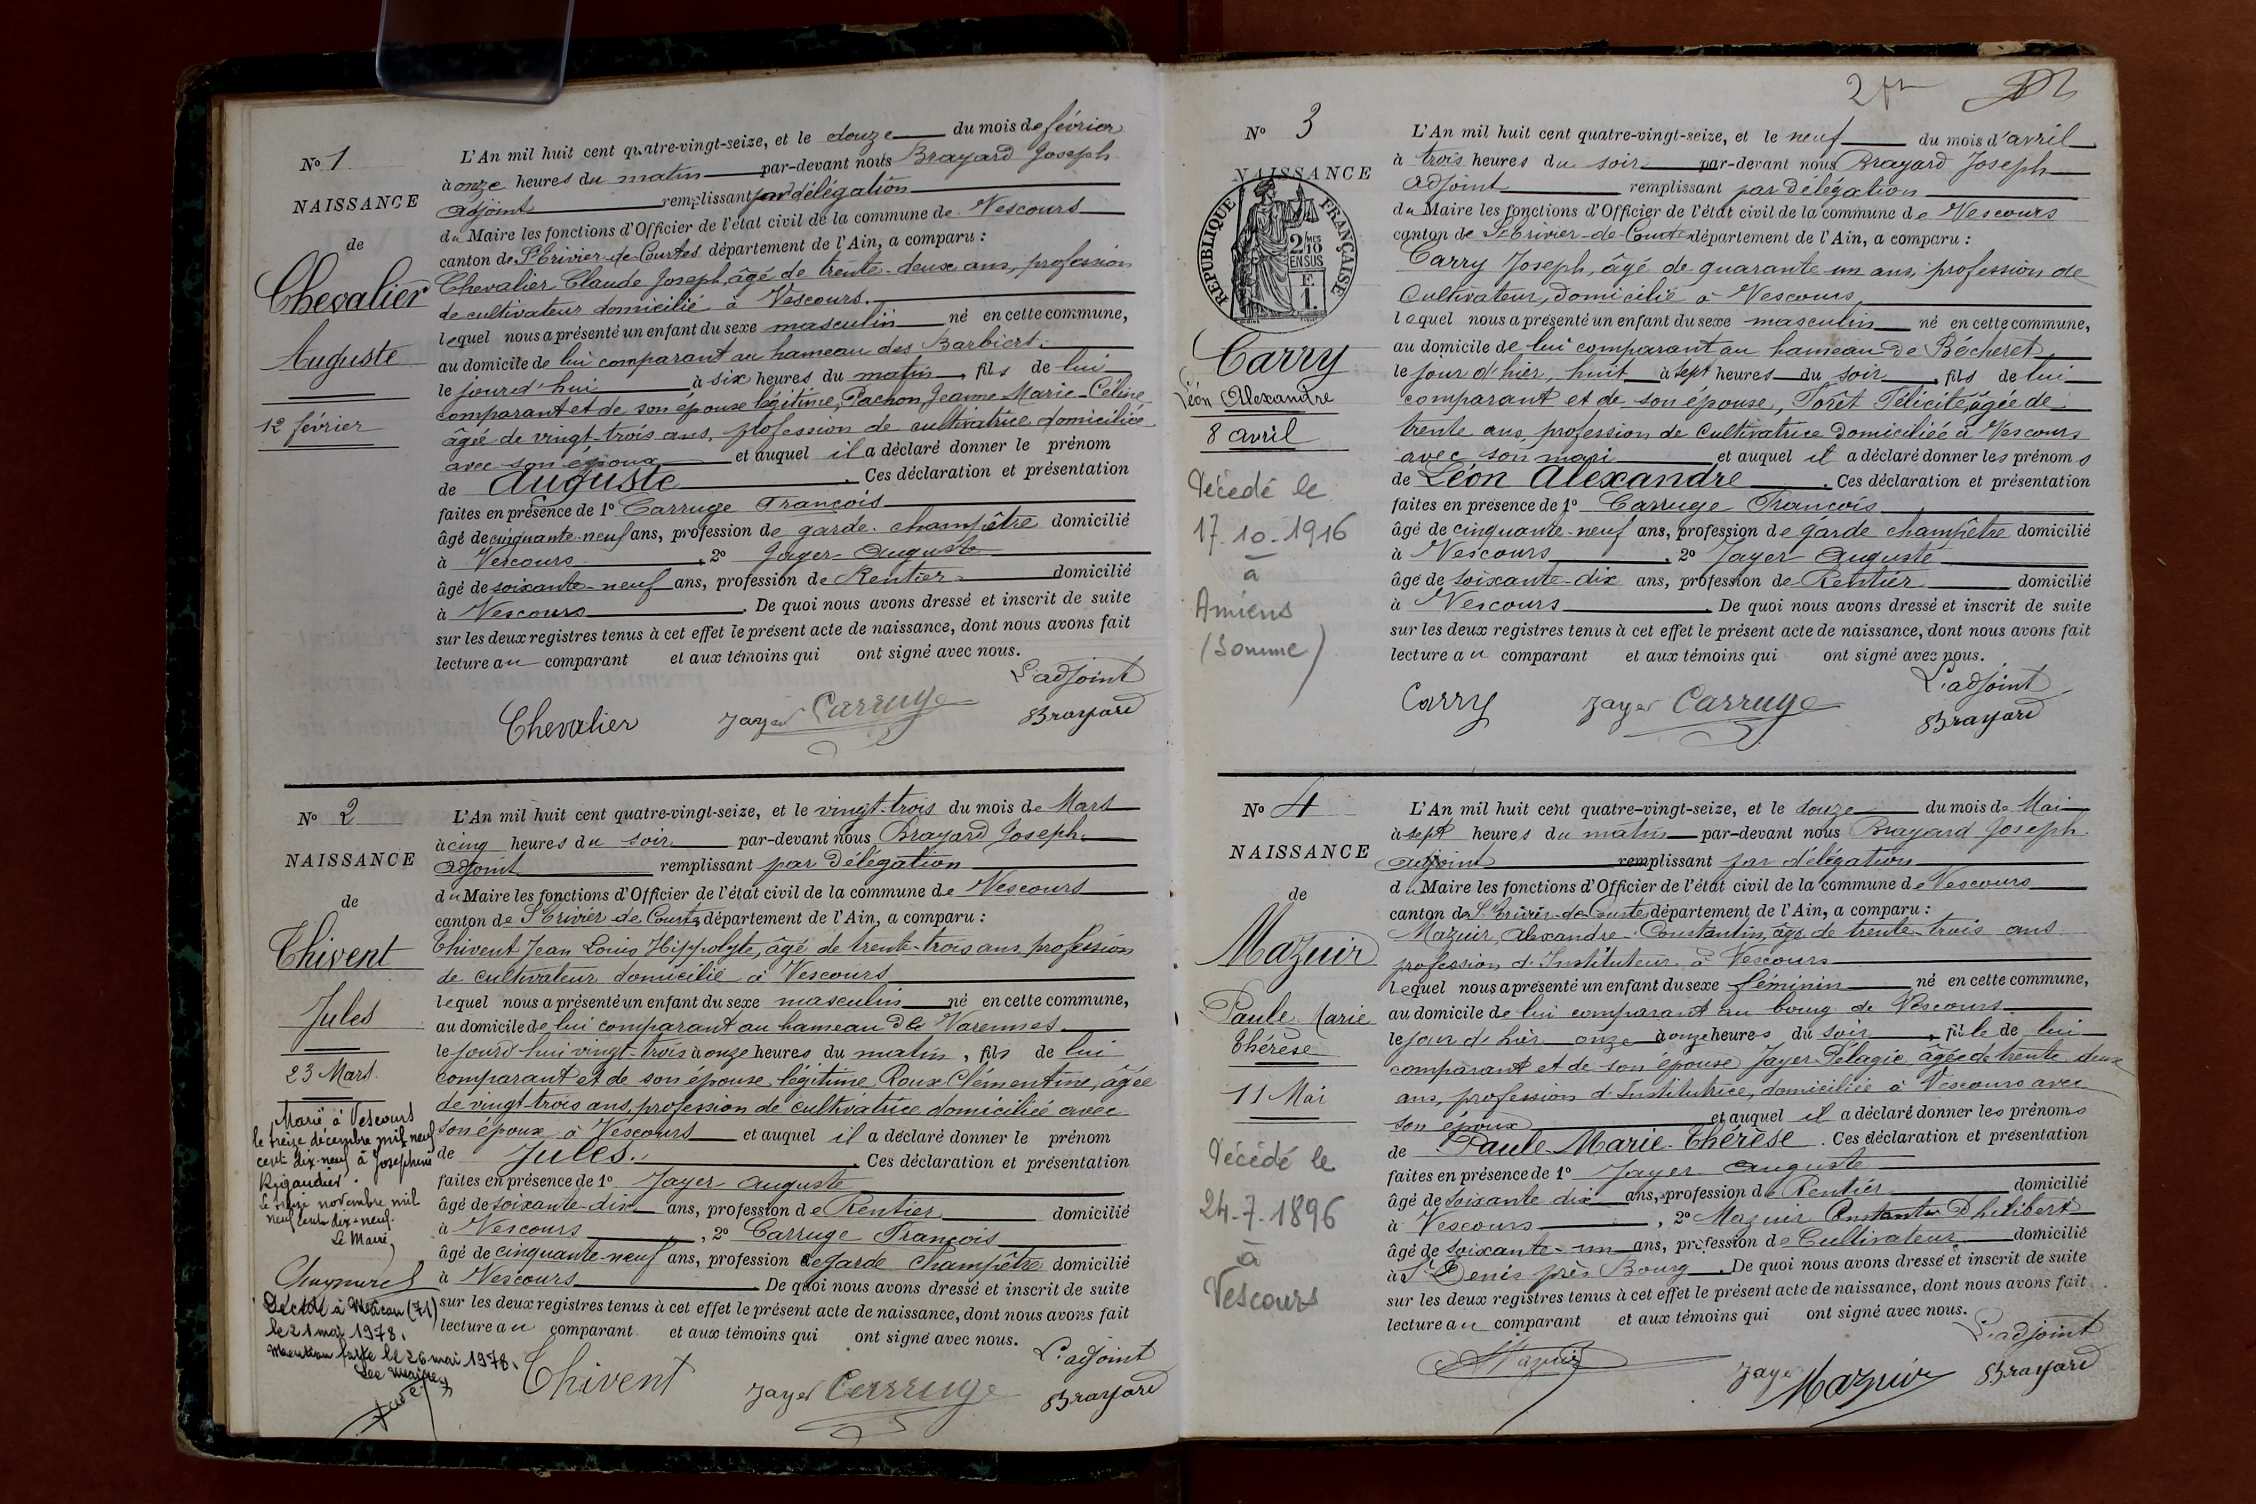 N° 1
NAISSANCE
de
Chevalier
Auguste
12 février
L'An mil huit cent quatre-vingt-seize, et le douze du mois de février
à onze heures du matin par-devant nous Brayard Joseph
adjoint remplissant par délégation
du Maire les fonctions d'Officier de l'état civil de la commune de Vescours
canton de St Trivier-de-Courtes département de l'Ain, a comparu :
Chevalier Claude Joseph, âgé de trente-deux ans, profession
de cultivateur domicilié à Vescours.
lequel nous a présenté un enfant du sexe masculin né en cette commune,
au domicile de lui comparant au hameau des Barbiers.
le jourd'hui à six heures du matin, fils de lui
comparant et de son épouse légitime, Pachon Jeanne Marie-Céline
âgée de vingt-trois ans, profession de cultivatrice domiciliée
avec son époux et auquel il a déclaré donner le prénom
de Auguste. Ces déclaration et présentation
faites en présence de 1° Carruge François
âgé de cinquante-neuf ans, profession de garde-champêtre domicilié
à Vescours, 2° Jayer Auguste
âgé de soixante-neuf ans, profession de Rentier domicilié
à Vescours. De quoi nous avons dressé et inscrit de suite
sur les deux registres tenus à cet effet le présent acte de naissance, dont nous avons fait
lecture au comparant et aux témoins qui ont signé avec nous.
L'adjoint
Chevalier Jayer Carruge Brayard
N° 2
NAISSANCE
de
Thivent
Jules
23 Mars.
Marié à Vescours
le treize décembre mil neuf
cent dix-neuf à Joséphine
Rigaudier.
Le novembre mil
neuf cent dix-neuf.
Le Maire,
Décédé à Mâcon (71)
le 21 mai 1978.
Mention faite le 26 mai 1978.
Le Maire,
L'An mil huit cent quatre-vingt-seize, et le vingt-trois du mois de Mars
à cinq heures du soir par-devant nous Brayard Joseph.
adjoint remplissant par délégation
du Maire les fonctions d'Officier de l'état civil de la commune de Vescours
canton de St Trivier de Courtes, département de l'Ain, a comparu :
Thivent Jean Louis Hippolyte, âgé de trente-trois ans, profession
de cultivateur domicilié à Vescours
lequel nous a présenté un enfant du sexe masculin né en cette commune,
au domicile de lui comparant au hameau des Varennes
le jourd'hui vingt-trois à onze heures du matin, fils de lui
comparant et de son épouse légitime Roux Clémentine, âgée
de vingt-trois ans, profession de cultivatrice domiciliée avec
son époux à Vescours et auquel il a déclaré donner le prénom
de Jules. Ces déclaration et présentation
faites en présence de 1° Jayer Auguste
âgé de soixante-dix ans, profession de Rentier domicilié
à Vescours, 2° Carruge François
âgé de cinquante-neuf ans, profession de garde champêtre domicilié
à Vescours De quoi nous avons dressé et inscrit de suite
sur les deux registres tenus à cet effet le présent acte de naissance, dont nous avons fait
lecture au comparant et aux témoins qui ont signé avec nous.
L'adjoint
Thivent Jayer Carruge Brayard
2
N° 3
NAISSANCE
RÉPUBLIQUE FRANÇAISE
2/10 EN SUS
E
1.
Carry
Léon Alexandre
8 avril
Décédé le
17-10-1916
à
Amiens
(Somme)
L'An mil huit cent quatre-vingt-seize, et le neuf du mois d'avril
à trois heures du soir par-devant nous Brayard Joseph
adjoint remplissant par délégation
du Maire les fonctions d'Officier de l'état civil de la commune de Vescours
canton de St Trivier-de-Courtes département de l'Ain, a comparu :
Carry Joseph, âgé de quarante un ans, profession de
cultivateur, domicilié à Vescours,
lequel nous a présenté un enfant du sexe masculin né en cette commune,
au domicile de lui comparant au hameau de Bécheret,
le jour d'hier, huit à sept heures du soir, fils de lui
comparant et de son épouse, Forêt Félicité, âgée de
trente ans, profession de cultivatrice domiciliée à Vescours
avec son mari et auquel il a déclaré donner les prénoms
de Léon Alexandre. Ces déclaration et présentation
faites en présence de 1° Carruge François
âgé de cinquante-neuf ans, profession de garde champêtre domicilié
à Vescours, 2° Jayer Auguste
âgé de soixante-dix ans, profession de Rentier domicilié
à Vescours. De quoi nous avons dressé et inscrit de suite
sur les deux registres tenus à cet effet le présent acte de naissance, dont nous avons fait
lecture au comparant et aux témoins qui ont signé avec nous.
L'adjoint
Carry Jayer Carruge Brayard
N° 4
NAISSANCE
de
Mazuir
Paule Marie
Thérèse
11 Mai
Décédé le
24-7-1896
à
Vescours
L'An mil huit cent quatre-vingt-seize, et le douze du mois de Mai
à sept heures du matin par-devant nous Brayard Joseph.
adjoint remplissant par délégation
du Maire les fonctions d'Officier de l'état civil de la commune de Vescours
canton de St Trivier-de-Courtes département de l'Ain, a comparu :
Mazuir, Alexandre Constantin, âgé de trente-trois ans
profession d'Instituteur à Vescours
lequel nous a présenté un enfant du sexe féminin né en cette commune,
au domicile de lui comparant au bourg de Vescours
le jour d'hier onze à onze heures du soir, fille de lui
comparant et de son épouse Jayer Pélagie âgée de trente-deux
ans, profession d'Institutrice, domiciliée à Vescours avec
son époux et auquel il a déclaré donner les prénoms
de Paule-Marie-Thérèse. Ces déclaration et présentation
faites en présence de 1° Jayer Auguste
âgé de soixante dix ans, profession de Rentier domicilié
à Vescours, 2° Mazuir Constantin Philibert
âgé de soixante-un ans, profession de Cultivateur domicilié
à St Denis près Bourg. De quoi nous avons dressé et inscrit de suite
sur les deux registres tenus à cet effet le présent acte de naissance, dont nous avons fait
lecture au comparant et aux témoins qui ont signé avec nous.
L'adjoint
Mazuir Jayer Mazuir Brayard